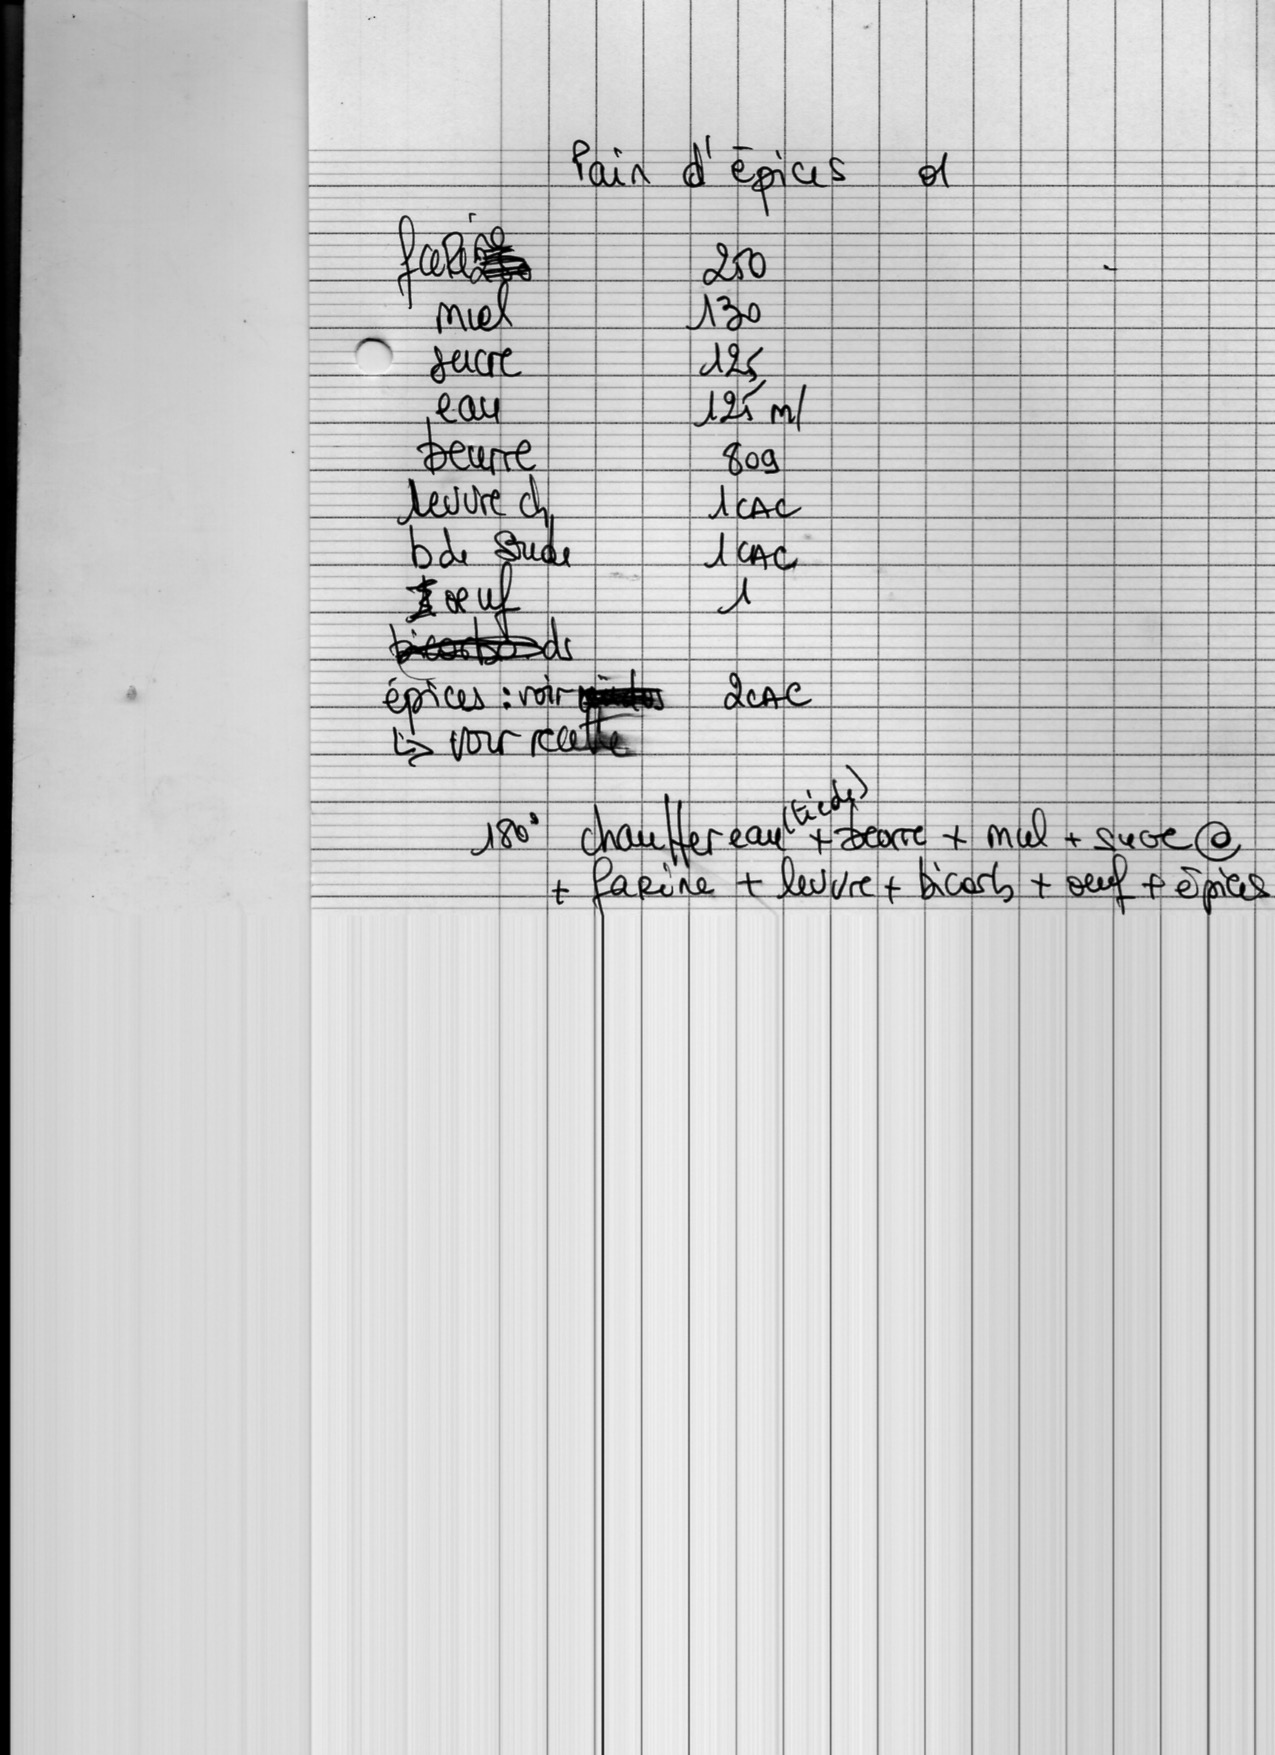 Pain d'épices
farine 250
miel 130
sucre 125
eau 125 ml
beurre 80g
levure ch 1 CAC
b de soude 1 CAC
oeuf 1
épices : voir 2 CAC
↳ voir recette
180° chauffer eau (tiède) + beurre + miel + sucre @
+ farine + levure + bicarb + oeuf + épices